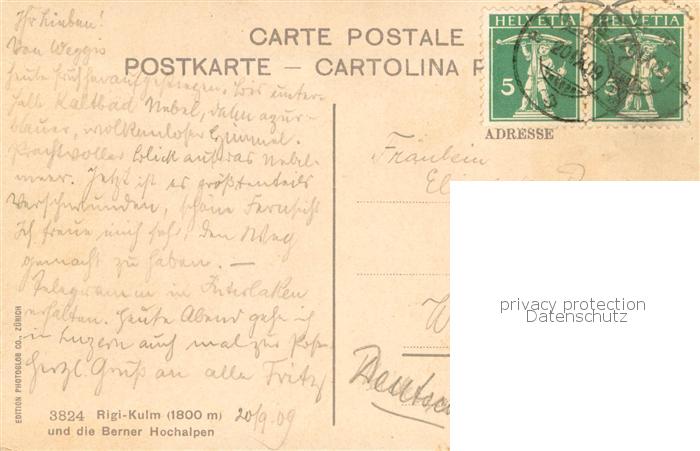 CARTE POSTALE
POSTKARTE — CARTOLINA P
HELVETIA HELVETIA
5 5
ADRESSE
Ihr Lieben!
Von Weggis
heute früh heraufgestiegen. Bis unter-
halb Kaltbad Nebel, dann azur-
blauer, wolkenloser Himmel.
Prachtvoller Blick auf das Nebel-
meer. Jetzt ist es größtenteils
verschwunden, schöne Fernsicht
Ich freue mich sehr, den Weg
gemacht zu haben. —
Telegramm in Interlaken
erhalten. Heute Abend gehe ich
in Luzern auch mal zur Post
Herzl. Gruß an alle Fritz
Fräulein
Deutsc
privacy protection
Datenschutz
EDITION PHOTOGLOB CO., ZÜRICH
3824 Rigi-Kulm (1800 m) 20/9.09
und die Berner Hochalpen